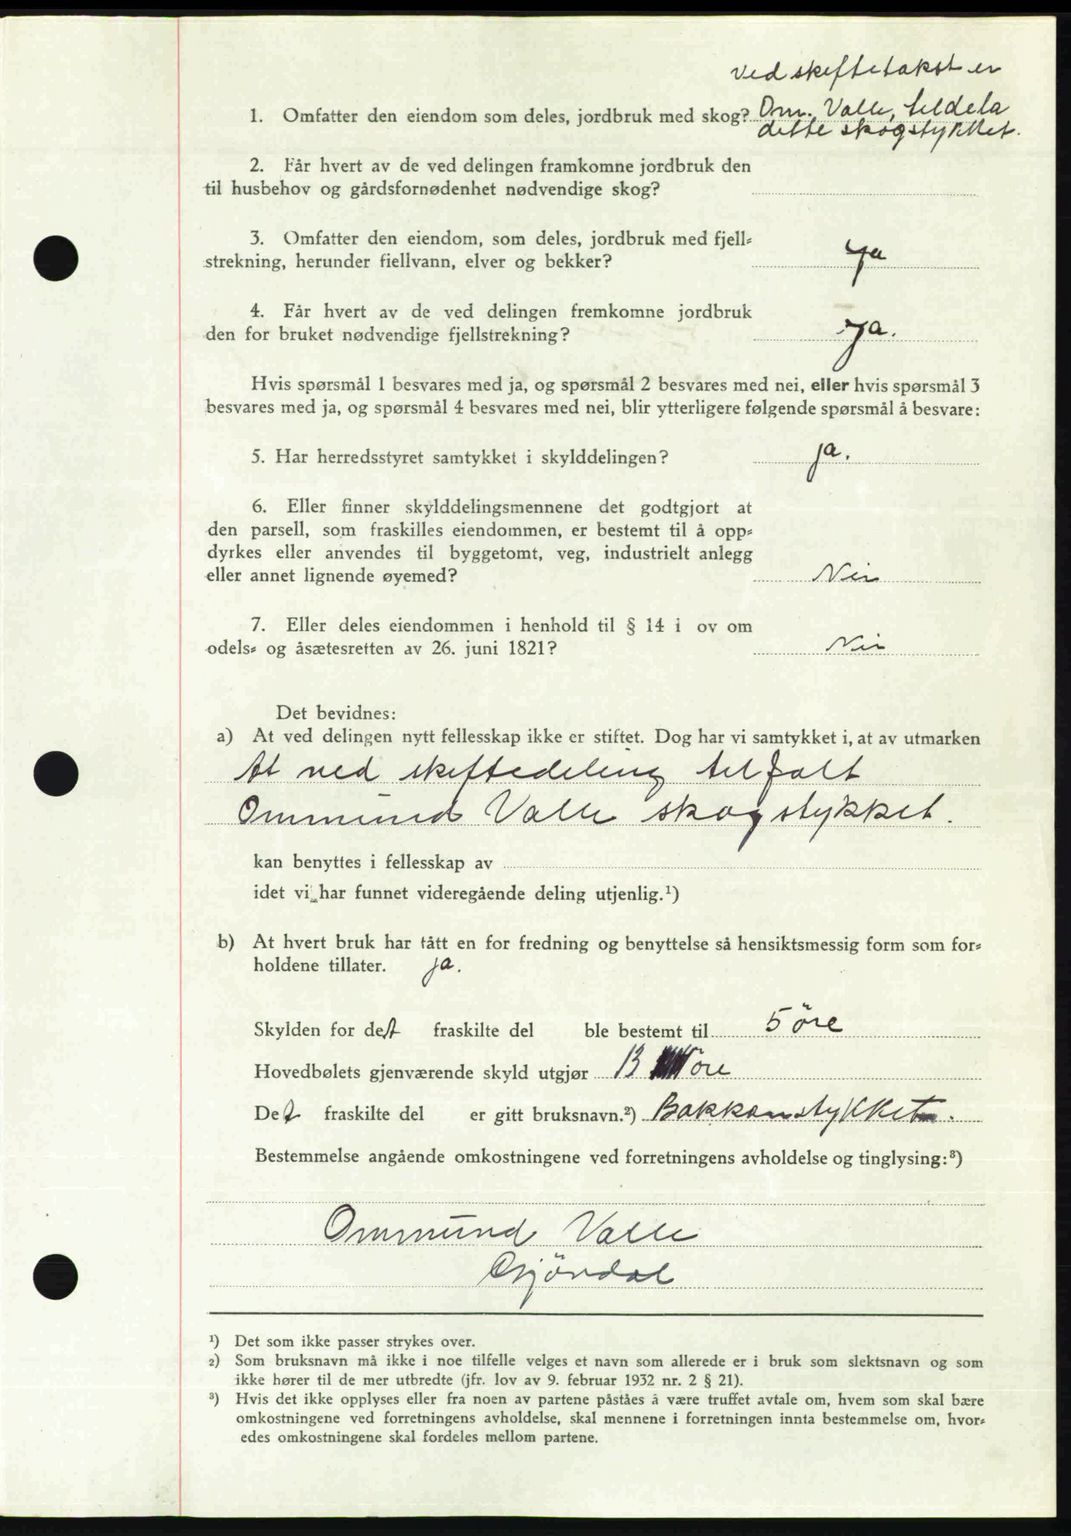 Ved skiftetakst er
1. Omfatter den eiendom som deles, jordbruk med skog? Om. Valle, tildela
dette skogstykket.
2. Får hvert av de ved delingen framkomne jordbruk den
til husbehov og gårdsfornødenhet nødvendige skog?
3. Omfatter den eiendom, som deles, jordbruk med fjell=
strekning, herunder fiellvann, elver og bekker? Ja
4. Får hvert av de ved delingen fremkomne jordbruk
den for bruket nødvendige fjellstrekning? Ja.
Hvis spørsmål 1 besvares med ja, og spørsmål 2 besvares med nei, eller hvis spørsmål 3
besvares med ja, og spørsmål 4 besvares med nei, blir ytterligere følgende spørsmål å besvare:
5. Har herredsstyret samtykket i skylddelingen? ja.
6. Eller finner skylddelingsmennene det godtgjort at
den parsell, som fraskilles eiendommen, er bestemt til å opp=
dyrkes eller anvendes til byggetomt, veg, industrielt anlegg
eller annet lignende øyemed? Nei
7. Eller deles eiendommen i henhold til § 14 i ov om
odels= og åsætesretten av 26. juni 1821? Nei
Det bevidnes:
a) At ved delingen nytt fellesskap ikke er stiftet. Dog har vi samtykket i, at av utmarken
At ved skiftedeling tilfalt
Ommund Valle skogstykket.
kan benyttes i fellesskap av
idet vi har funnet videregående deling utjenlig.¹)
b) At hvert bruk har fått en for fredning og benyttelse så hensiktsmessig form som for=
holdene tillater. ja.
Skylden for det fraskilte del ble bestemt til 5 öre
Hovedbølets gjenværende skyld utgjør 13 öre
Det fraskilte del er gitt bruksnavn.²) Bakkanstykket.
Bestemmelse angående omkostningene ved forretningens avholdelse og tinglysing:³)
Ommund Valle
Gjöndal
¹) Det som ikke passer strykes over.
²) Som bruksnavn må ikke i noe tilfelle velges et navn som allerede er i bruk som slektsnavn og som
ikke hører til de mer utbredte (jfr. lov av 9. februar 1932 nr. 2 § 21).
³) Hvis det ikke opplyses eller fra noen av partene påståes å være truffet avtale om, hvem som skal bære
omkostningene ved forretningens avholdelse, skal mennene i forretningen innta bestemmelse om, hvor=
edes omkostningene skal fordeles mellom partene.